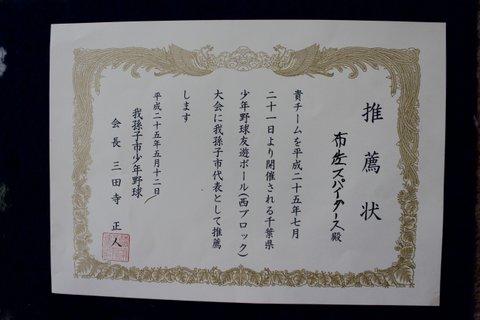 推薦状
布佐スパイダース殿
貴チームを平成二十五年七月
二十一日より開催される千葉県
少年野球友遊ボール(西ブロック)
大会に我孫子市代表として推薦
します
平成二十五年五月十二日
我孫子市少年野球
会長 三田寺 正人